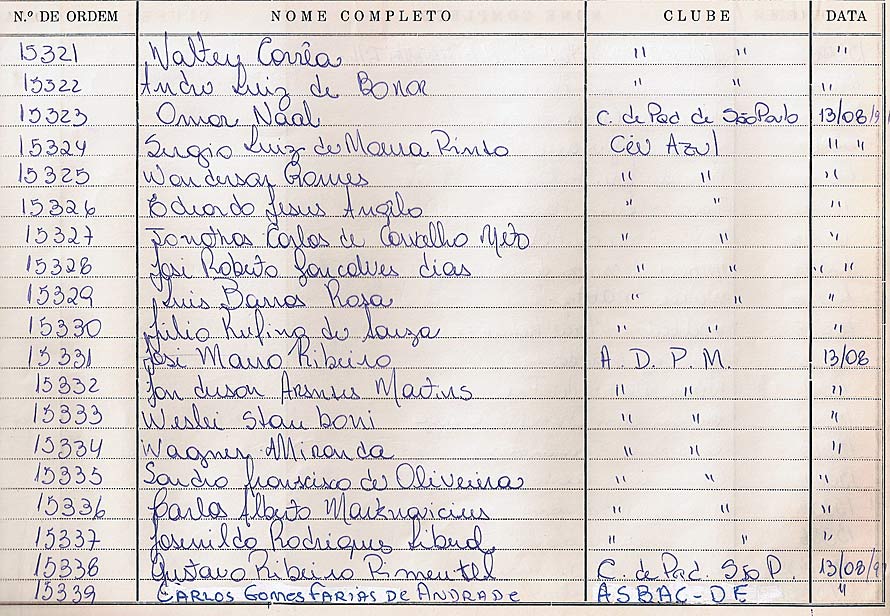 N.º DE ORDEM NOME COMPLETO CLUBE DATA
15321 Walter Corrêa " " "
15322 Andre Luiz de Bonor " " "
15323 Omar Naal C. de Pad de São Paulo 13/08/9
15324 Sergio Luiz de Moura Pinto Céu Azul " "
15325 Wanderson Gomes " " "
15326 Eduardo Jesus Angelo " " "
15327 Jonathas Carlos de Carvalho Neto " " "
15328 José Roberto Gonçalves dias " " " "
15329 Luis Barros Rosa " " "
15330 Júlio Rufino de Souza " " "
15331 José Mario Ribeiro A. D. P. M. 13/08
15332 Martins " " "
15333 Weslei " " "
15334 Wagner Miranda " " "
15335 Sandro Francisco de Oliveira " " "
15336 Carlos Alberto Marknavicius " " "
15337 Josenildo Rodrigues " " "
15338 Gustavo Ribeiro Pimentel C. de Pad. São P. 13/08/9
15339 CARLOS GOMES FARIAS DE ANDRADE ASBAC-DF "